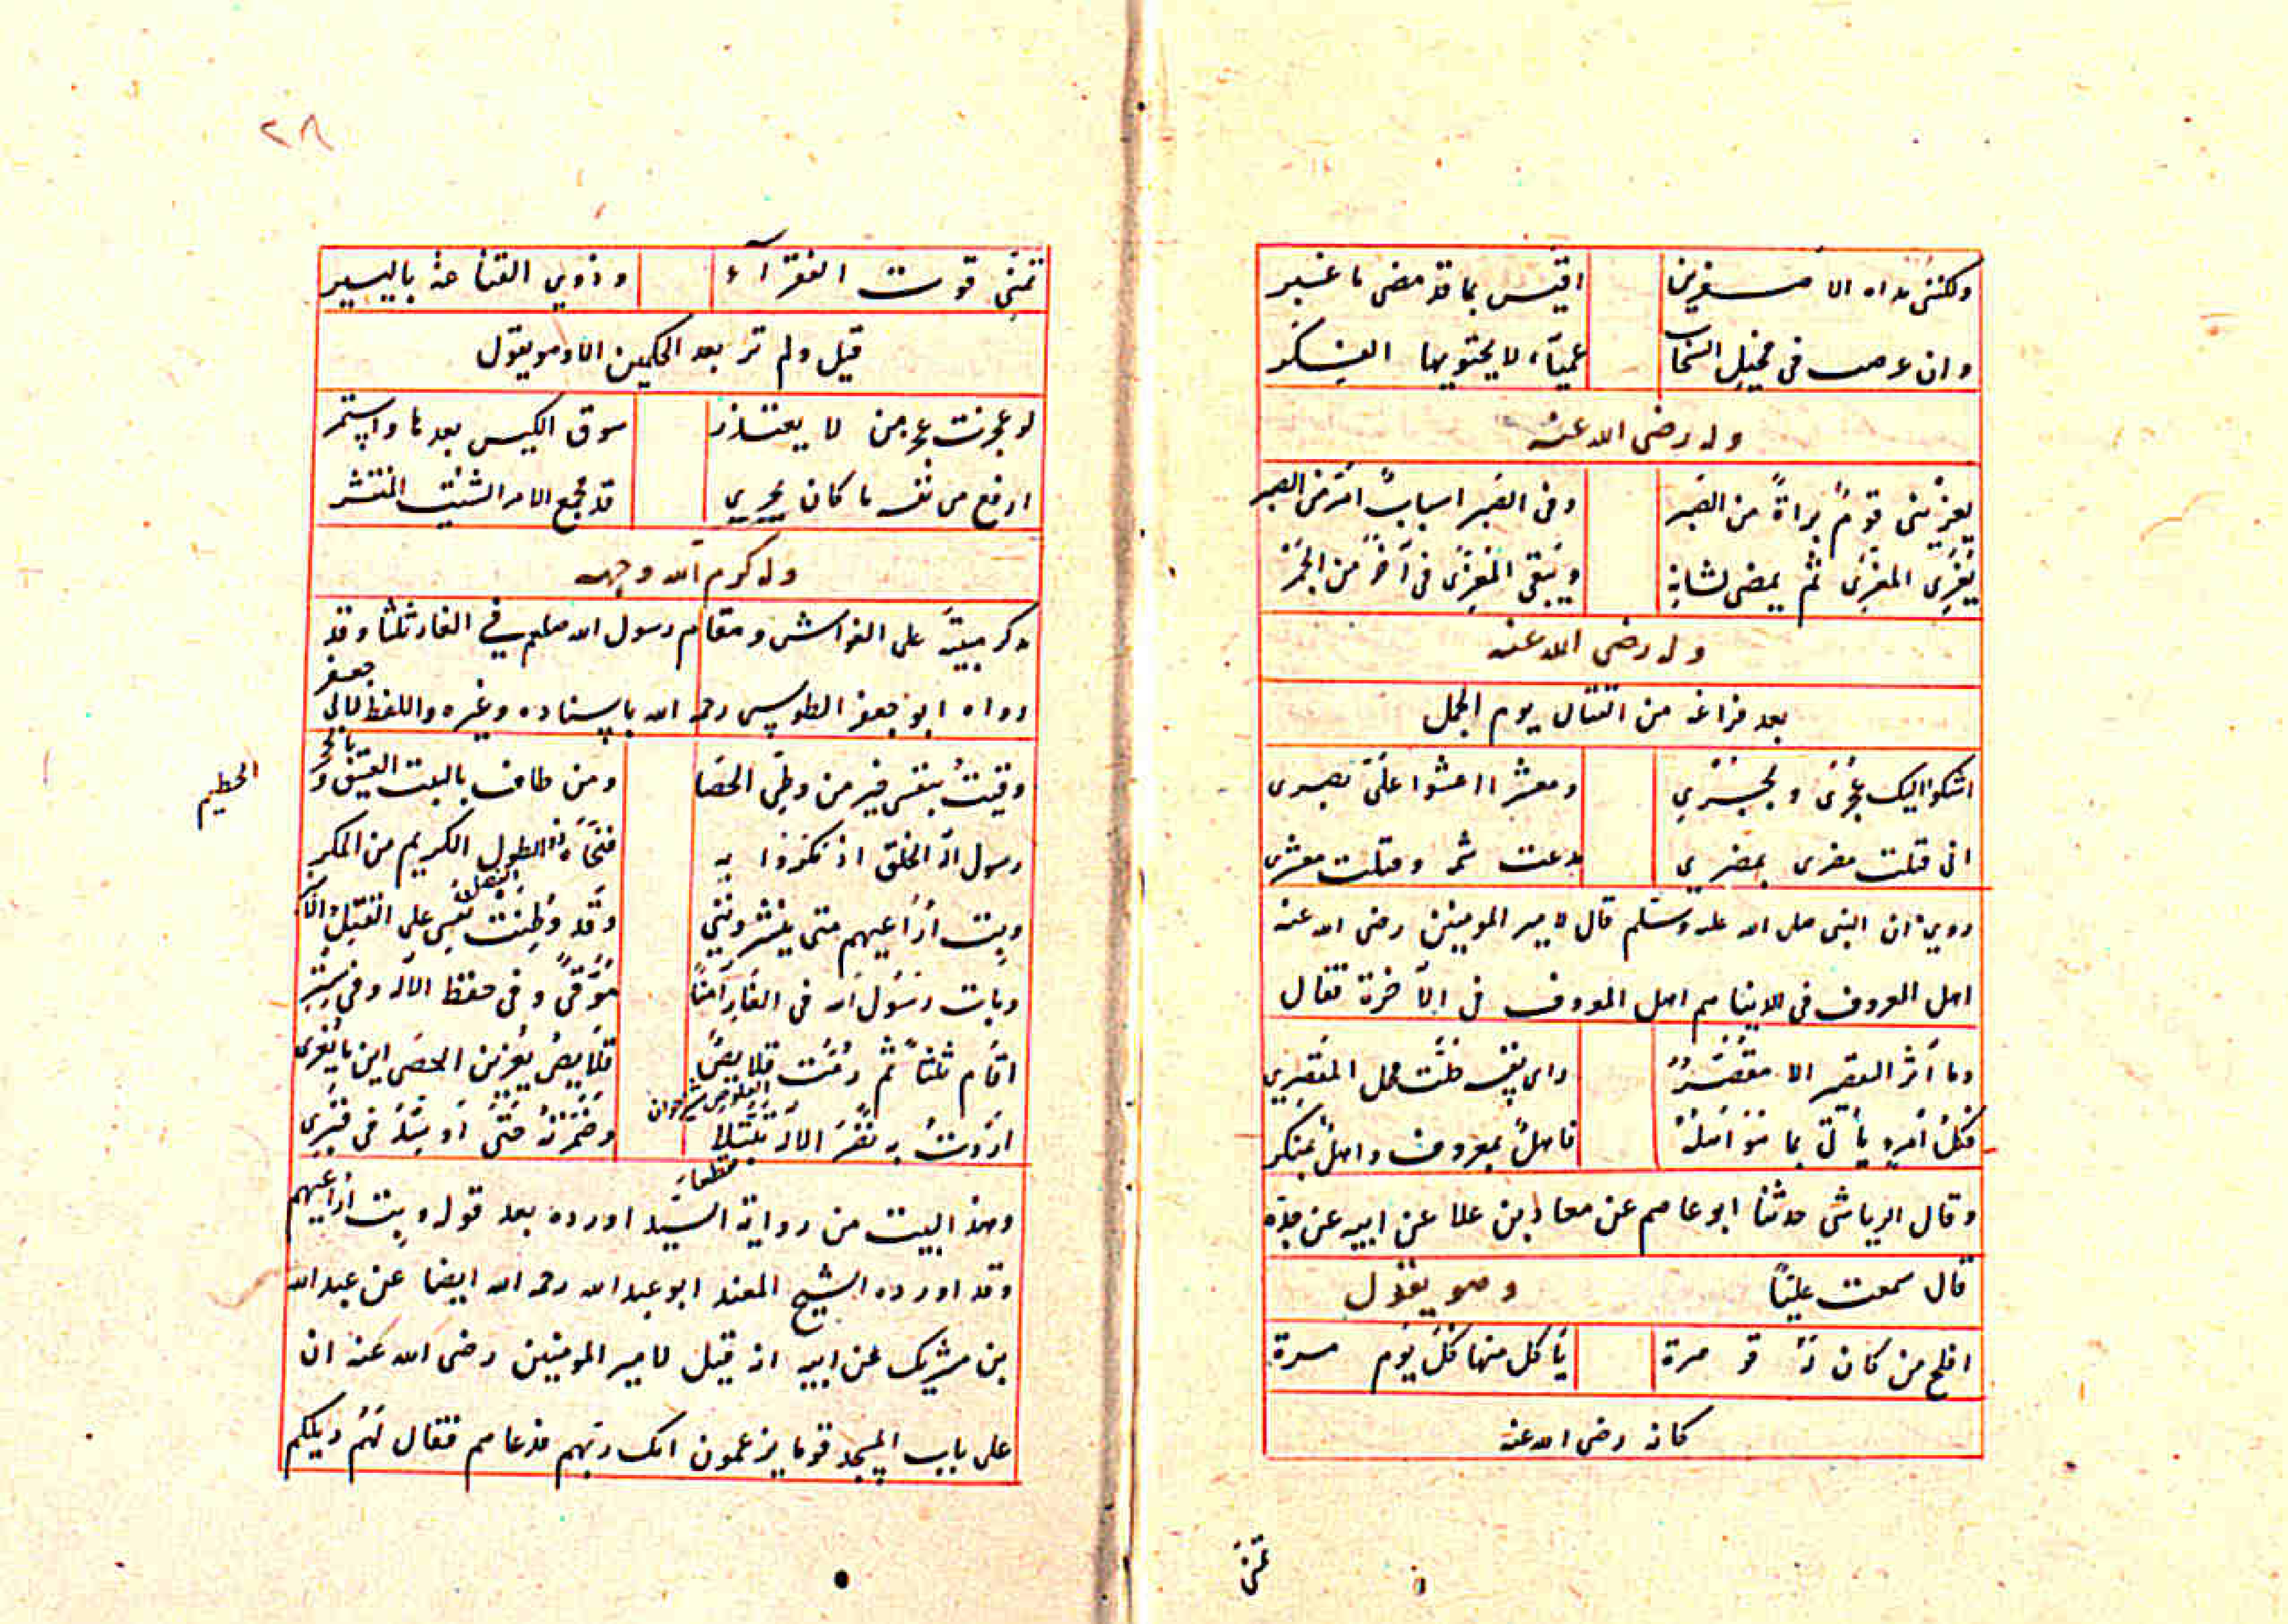 اقيس بما قد مضى ما غبر
وان عرصت فى مخيل السحاب عمياء لا يجتويها
وله رضى الله عنه
يعزينى قوم براة من الصبر وفى الصبر اسباب امر من الصبر
يعزى المعزى ثم يمضى لشانه ويبقى المعزى فى آخر من الجمر
وله رضى الله عنه
بعد فراغه من القتال يوم الجمل
اشكوا اليك عجرى وبجرى ومعشرا اعشوا على بصرى
انى قتلت مضرى بمضرى وقتلت معشرى
روى ان النبى صلى الله عليه وسلم قال لامير المومنين رضى الله عنه
اهل المعروف فى الدنيا هم اهل المعروف فى الآخرة فقال
فكل امرء يأتى بما هو اهله فاهل بمعروف واهل بمنكر
وقال الرياشى حدثنا ابو عاصم عن معاذ بن علا عن ابيه عن جده
قال سمعت عليا وهو يقول
افلح من كان له قو مرة يأكل منها كل يوم مرة
كانه رضى الله عنه
تمنى
٢٨
تمنى قوت الفقرآء وذوى القناعة باليسير
قيل ولم تر بعد الحكمين الا وهو يقول
لو عجزت عجز من لا يعتذر سوق اكيس بعدها واستمر
ارفع من نفسه ما كان يجرى قد يجمع الامر الشتيت المنتشر
وله كرم الله وجهه
ذكر مبيته على الفراش ومقام رسول الله صلعم فى الغار ثلثا وقد
رواه ابو جعفر الطوسى رحمه الله باسناده وغيره واللفظ لابى جعفر
وقيت بنفسى خير من وطئ الحصا ومن طاف بالبيت العتيق وبالحجر
الحطيم
رسول اله الخلق اذ مكروا به فنجاه ذو الطول الكريم من المكر
وبت اراعيهم متى ينشرونني وقد وطنت نفسى على القتل والا
وبات رسول الله فى الغار آمنا موقى وفى حفظ الاله وفى ستر
اقام ثلثا ثم زمت قلايص قلايص يفرين الحصى اين ما يفرى
اردت به نصر الاله تبتلا واضمرته حتى اوسد فى قبرى
وهذا البيت من رواية السيد اورده بعد قوله وبت اراعيهم
وقد اورده الشيخ المفيد ابو عبد الله رحمه الله ايضا عن عبد الله
بن شريك عن ابيه انه قيل لامير المومنين رضى الله عنه ان
على باب المسجد قوما يزعمون انك ربهم فدعاهم فقال لهم ويلكم